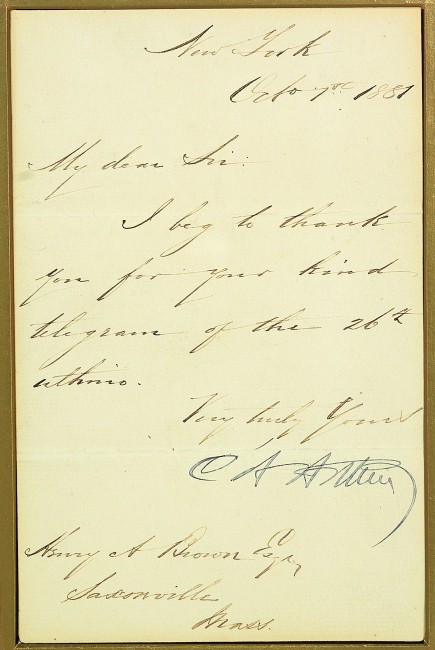 New York
Octo 7th 1881
My dear Sir:
I beg to thank
you for your kind
telegram of the 26th
ultimo.
Very truly Yours
C A Arthur
Henry A Brown Esqr
Saxonville
Mass.